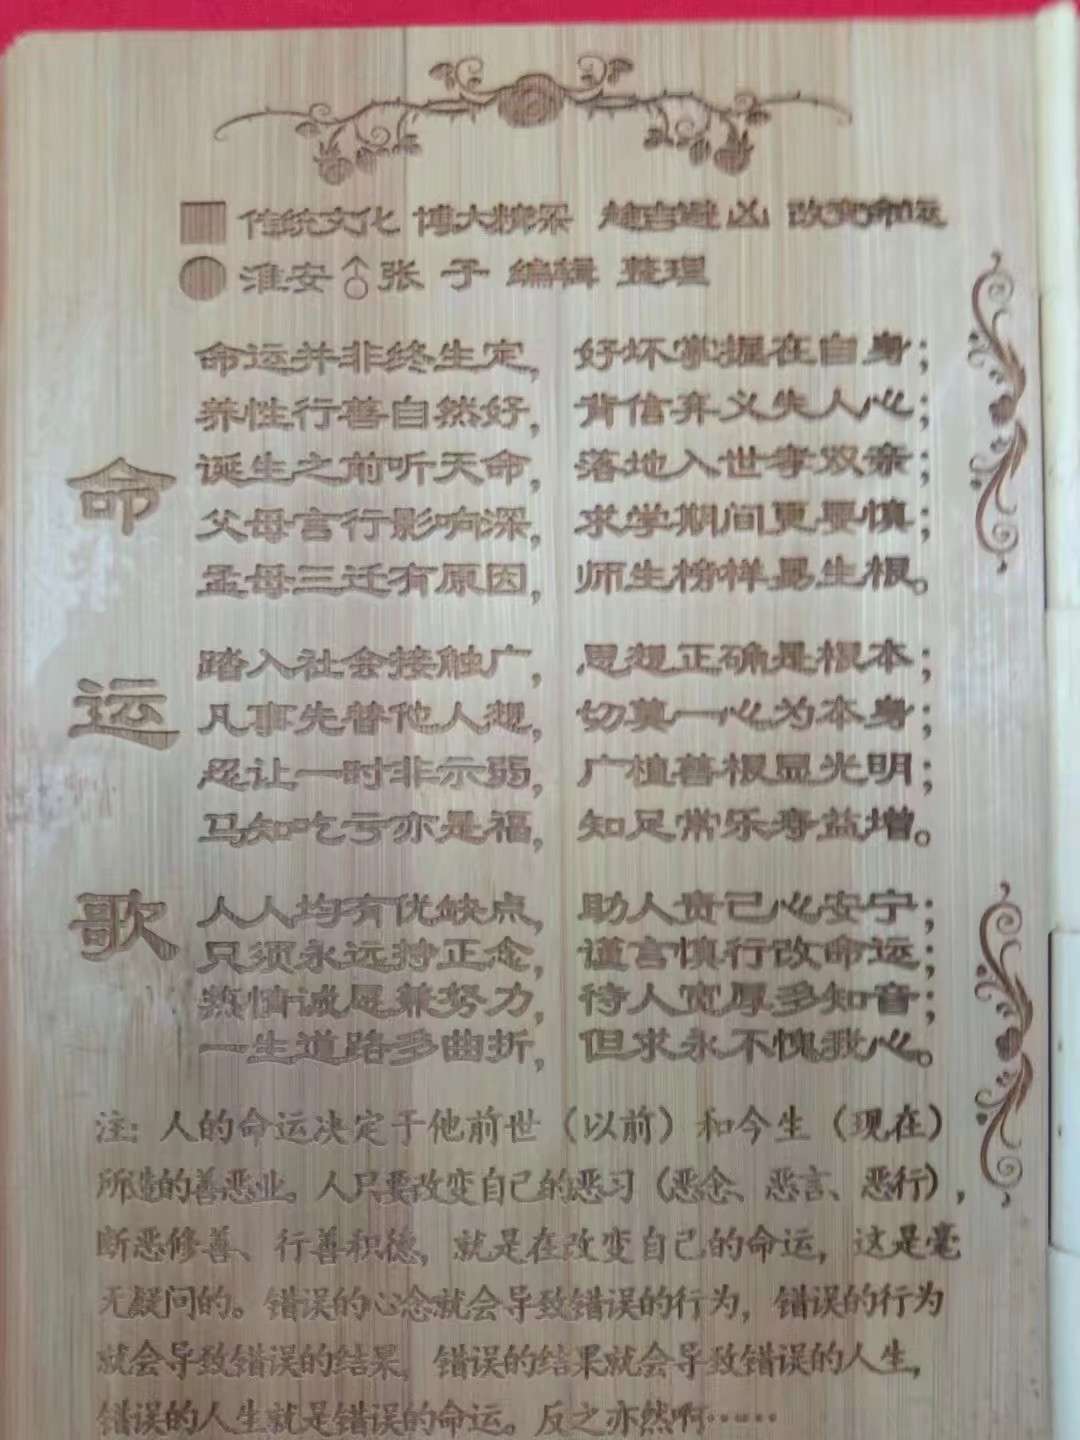 ■ 传统文化 博大精深 趋吉避凶 改变命运
● 淮安♂张 子 编辑 整理
命运歌
命运并非终生定, 好坏掌握在自身;
养性行善自然好, 背信弃义失人心;
诞生之前听天命, 落地入世孝双亲;
父母言行影响深, 求学期间更要慎;
孟母三迁有原因, 师生榜样易生根。
踏入社会接触广, 思想正确是根本;
凡事先替他人想, 切莫一心为本身;
忍让一时非示弱, 广植善根显光明;
马知吃亏亦是福, 知足常乐寿益增。
人人均有优缺点, 助人责己心安宁;
只须永远持正念, 谨言慎行改命运;
热情诚恳兼努力, 待人宽厚多知音;
一生道路多曲折, 但求永不愧我心。
注: 人的命运决定于他前世（以前）和今生（现在）
所造的善恶业。人只要改变自己的恶习（恶念、恶言、恶行）,
断恶修善、行善积德, 就是在改变自己的命运, 这是毫
无疑问的。错误的心念就会导致错误的行为, 错误的行为
就会导致错误的结果, 错误的结果就会导致错误的人生,
错误的人生就是错误的命运。反之亦然啊……